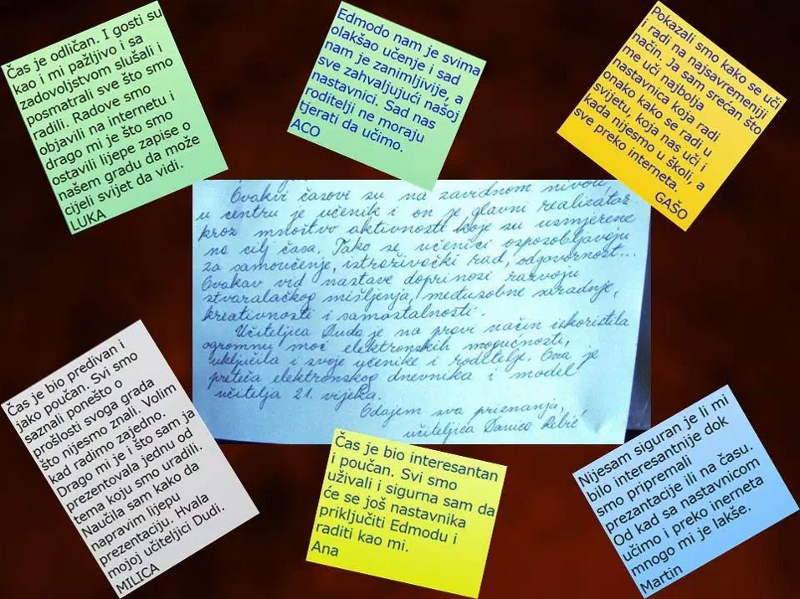 Čas je odličan. I gosti su
kao i mi pažljivo i sa
zadovoljstvom slušali i
posmatrali sve što smo
radili. Radove smo
objavili na internetu i
drago mi je što smo
ostavili lijepe zapise o
našem gradu da može
cijeli svijet da vidi.
LUKA
Edmodo nam je svima
olakšao učenje i sad
nam je zanimljivije, a
sve zahvaljujući našoj
nastavnici. Sad nas
roditelji ne moraju
tjerati da učimo.
ACO
Pokazali smo kako se uči
i radi na najsavremeniji
način. Ja sam srećan što
me uči najbolja
nastavnica koja radi
onako kako se radi u
svijetu, koja nas uči i
kada nijesmo u školi, a
sve preko interneta.
GAŠO
Ovakvi časovi su na zavidnom nivou,
u centru je učenik i on je glavni realizator
kroz mnoštvo aktivnosti koje su usmjerene
na cilj časa. Tako se učenici osposobljavaju
za samoučenje, istraživački rad, odgovornost...
Ovakav vid nastave doprinosi razvoju
stvaralačkog mišljenja, međusobne saradnje,
kreativnosti i samostalnosti.
Učiteljica Duda je na pravi način iskoristila
ogromnu moć elektronskih mogućnosti,
uključila i svoje učenike i roditelje. Ona je
preteča elektronskog dnevnika i model
učitelja 21. vijeka.
Odajem sva priznanja,
učiteljica
Čas je bio predivan i
jako poučan. Svi smo
saznali ponešto o
prošlosti svoga grada
što nijesmo znali. Volim
kad radimo zajedno.
Drago mi je i što sam ja
prezentovala jednu od
tema koju smo uradili.
Naučila sam kako da
napravim lijepu
prezentaciju. Hvala
mojoj učiteljici Dudi.
MILICA
Čas je bio interesantan
i poučan. Svi smo
uživali i sigurna sam da
će se još nastavnika
priključiti Edmodu i
raditi kao mi.
Ana
Nijesam siguran je li mi
bilo interesantnije dok
smo pripremali
prezantacije ili na času.
Od kad sa nastavnicom
učimo i preko inerneta
mnogo mi je lakše.
Martin